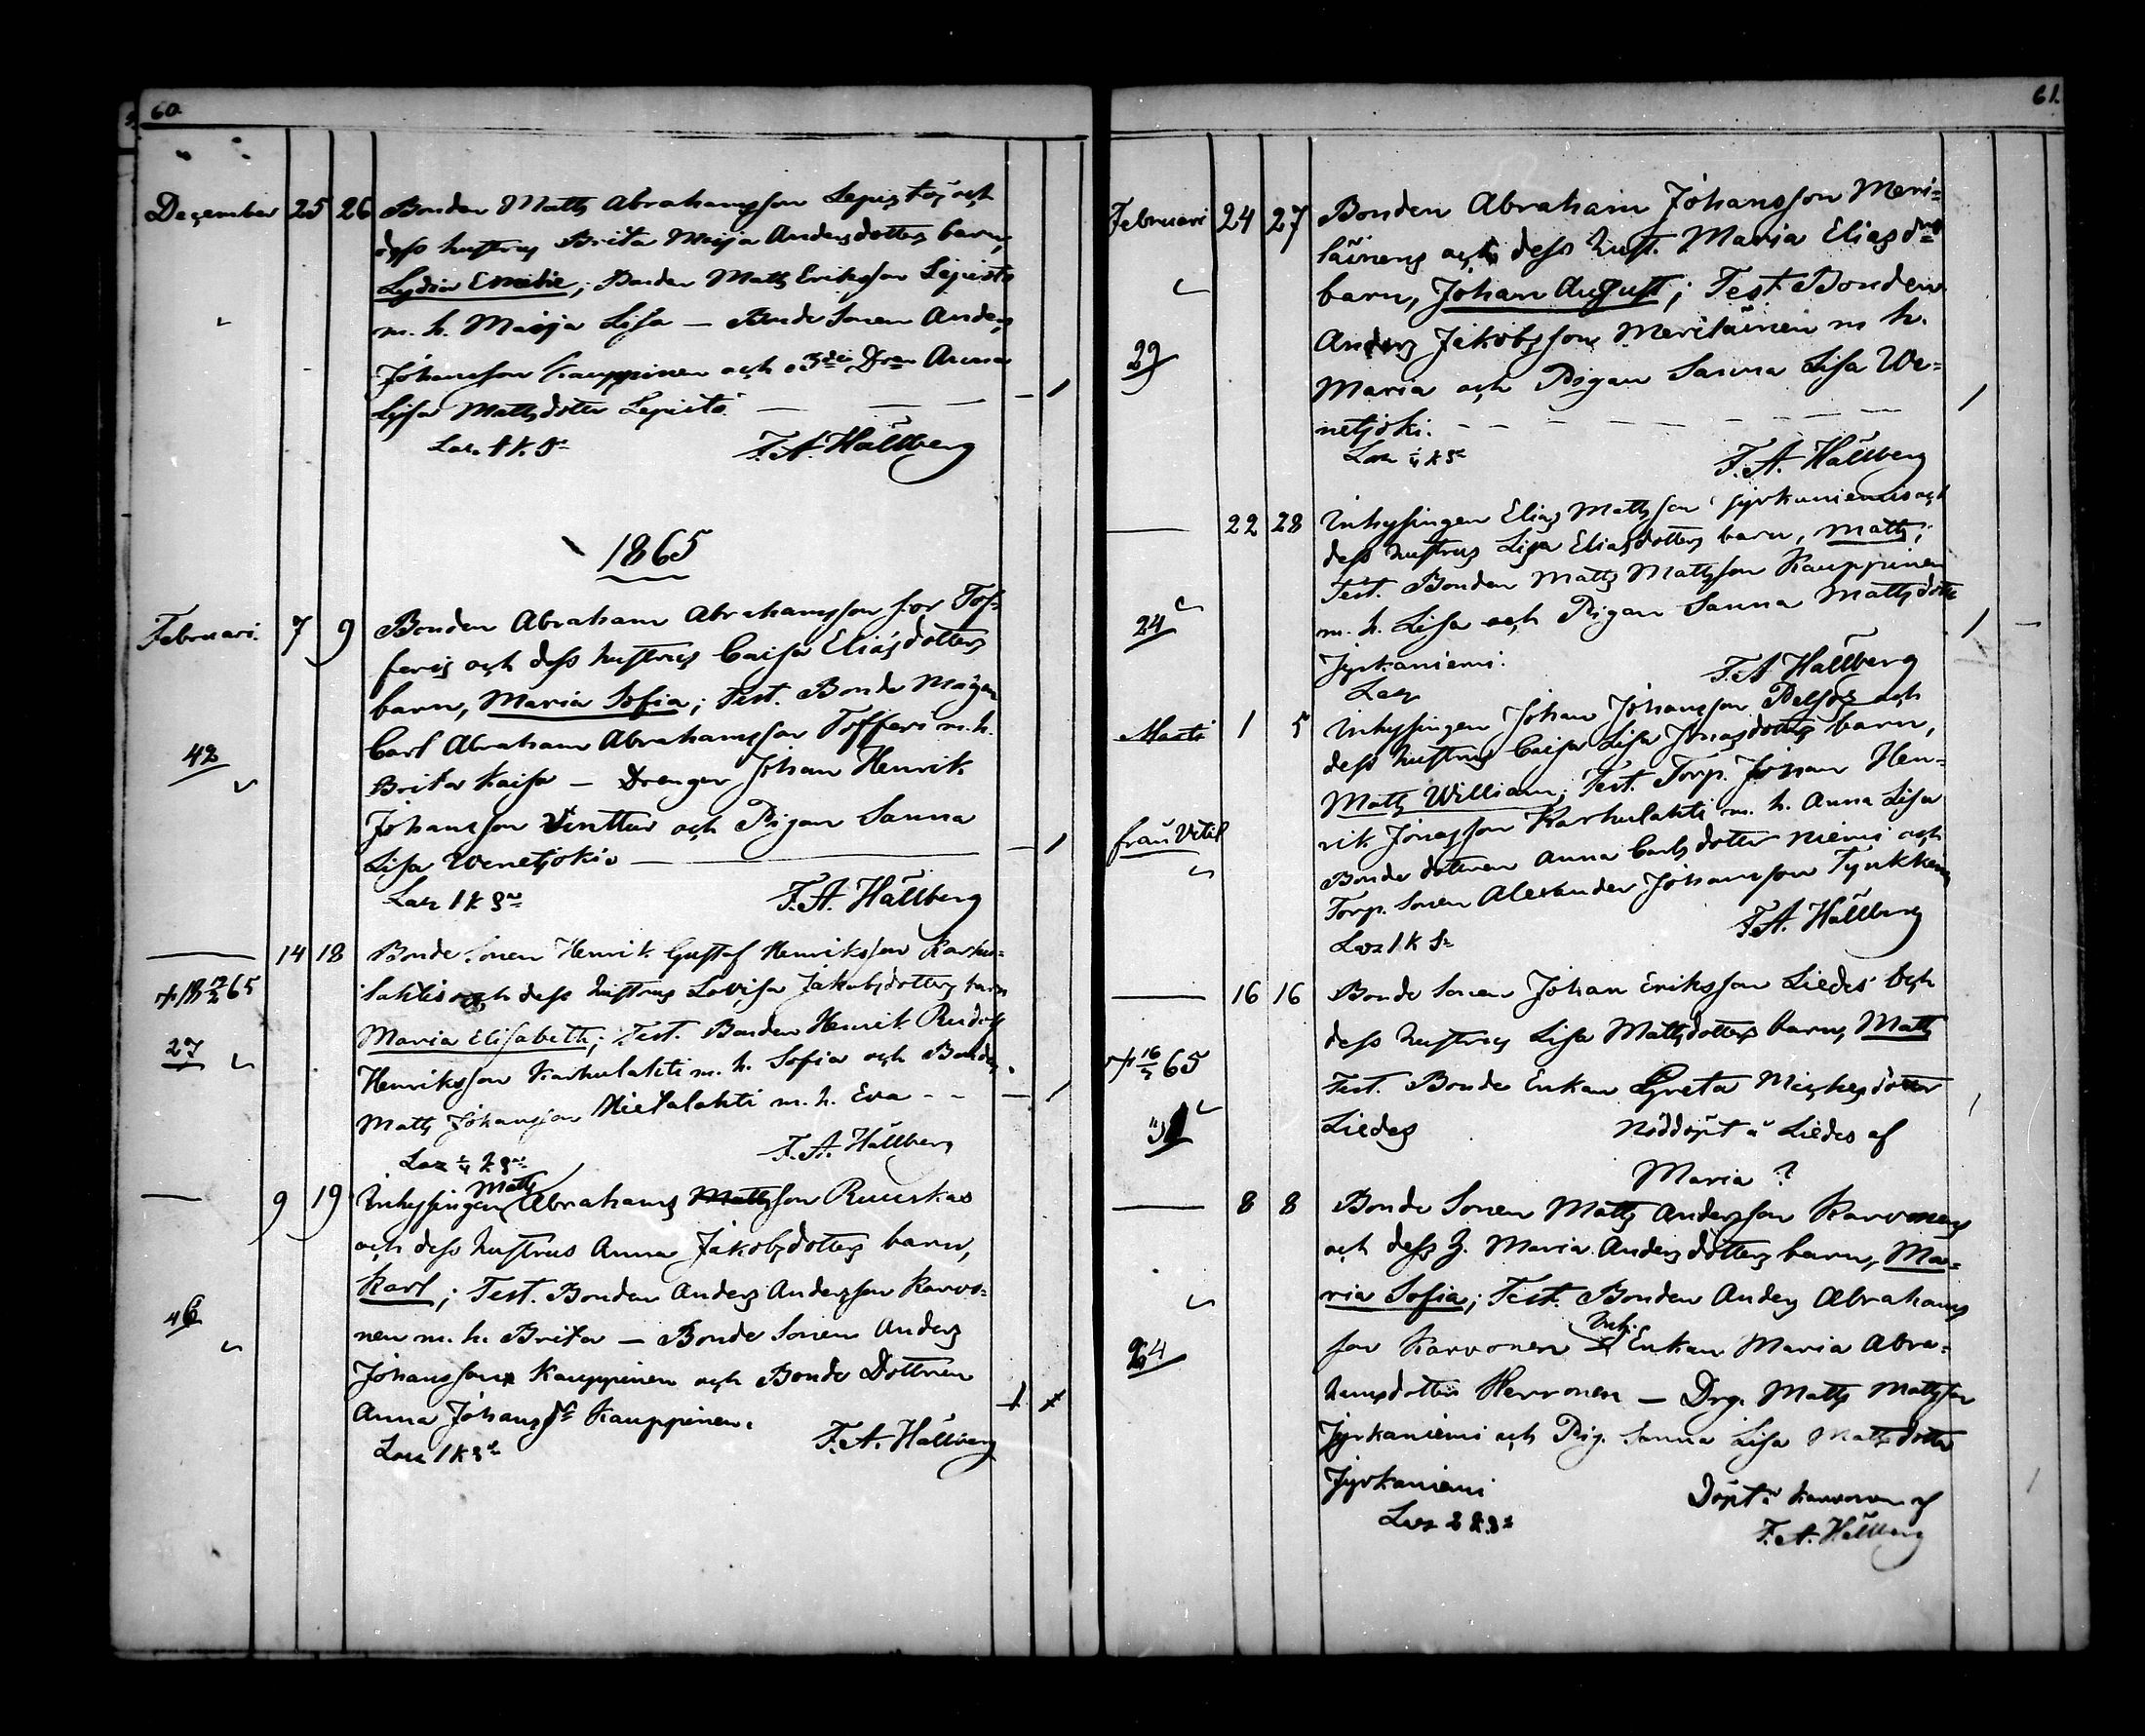 60.
December 25 26 Bonden Matts Abrahamsson Lepistös och
dess hustrus Brita Maja Andersdotters barn,
Lydia Emelie; Bonden Matts Eriksson Lepistö
m. h. Maija Lisa — Bonde Sonen Anders
Johansson Kauppinen och Anna
Lisa Mattsdotter Lepistö — — —
F. A. Hällberg
1865
Februari. 7 9 Bonden Abraham Abrahamsson Tof-
feris och dess hustrus Caisa Eliasdotters
barn, Maria Sofia; Test. Bonde Mågen
42 Carl Abraham Abrahamsson Tofferi m. h.
Brita Kaisa — Drengen Johan Henrik
Johansson och Pigan Sanna
Lisa Wenetjoki. —
Laz 1 k F. A. Hällberg
— 14 18 Bonde Sonen Henrik Gustaf Henriksson Karhu-
65 lahtis och dess hustrus Lovisa Jakobsdotters barn
27 Maria Elisabeth; Test. Bonden Henrik Rudolf
Henriksson Karhulahti m. h. Sofia och Bonden
Matts Johansson Hietalahti m. h. Eva - -
F. A. Hällberg
Matts
— 9 19 Inhysingen Abrahams Mattsson Ruuskas
och dess hustrus Anna Jakobsdotters barn,
46 Karl; Test. Bonden Anders Andersson Karvo-
nen m. h. Brita — Bonde Sonen Anders
Johansson Kauppinen och Bonde Dottren
Anna Johans dr Kauppinen.
Laz 1 k F. A. Hällberg
61.
Februari 24 27 Bonden Abraham Johansson Meri-
läinens och dess hust. Maria Elias drs
barn, Johan August; Test Bonden
29 Anders Jakobsson Meriläinen m h.
Maria och Pigan Sanna Lisa We-
netjoki. - - - - -
F. A. Hällberg
— 22 28 Inhysingen Elias Mattsson Jyrkaniemis och
dess hustrus Lisa Eliasdotters barn, Matts;
Test. Bonden Matts Mattsson Kauppinen
24 m. h. Lisa och Pigan Sanna Mattsdotter
Jyrkaniemi.
Laz F. A Hällberg
Marti 1 5 Inhysingen Johan Johansson och
dess hustrus Caisa Lisa Jonasdotters barn,
Matts William; Test. Torp. Johan Hen-
från Vetil rik Jonasson Karhulahti m. h. Anna Lisa
Bonde dottren Anna Carlsdotter Niemi och
Torp. Sonen Alexander Johansson Tynkkinen
Laz 1 k F. A. Hällberg
— 16 16 Bonde Sonen Johan Eriksson Liedes och
dess hustrus Lisa Mattsdotters barn, Matts
65 Test. Bonde Enkan Greta Michelsdotter
Liedes Nöddöpt å Liedes af
Maria ?
— 8 8 Bonde Sonen Matts Andersson Karvonens
och dess h. Maria Andersdotters barn, Ma-
ria Sofia; Test. Bonden Anders Abrahams
Inh.
64 son Karvonen Enkan Maria Abra-
hamsdotter Hervonen — Drg. Matts Mattsson
Jyrkaniemi och Pig. Sanna Lisa Mattsdotter
Jyrkaniemi Döpt å Karvonen af
F. A. Hällberg